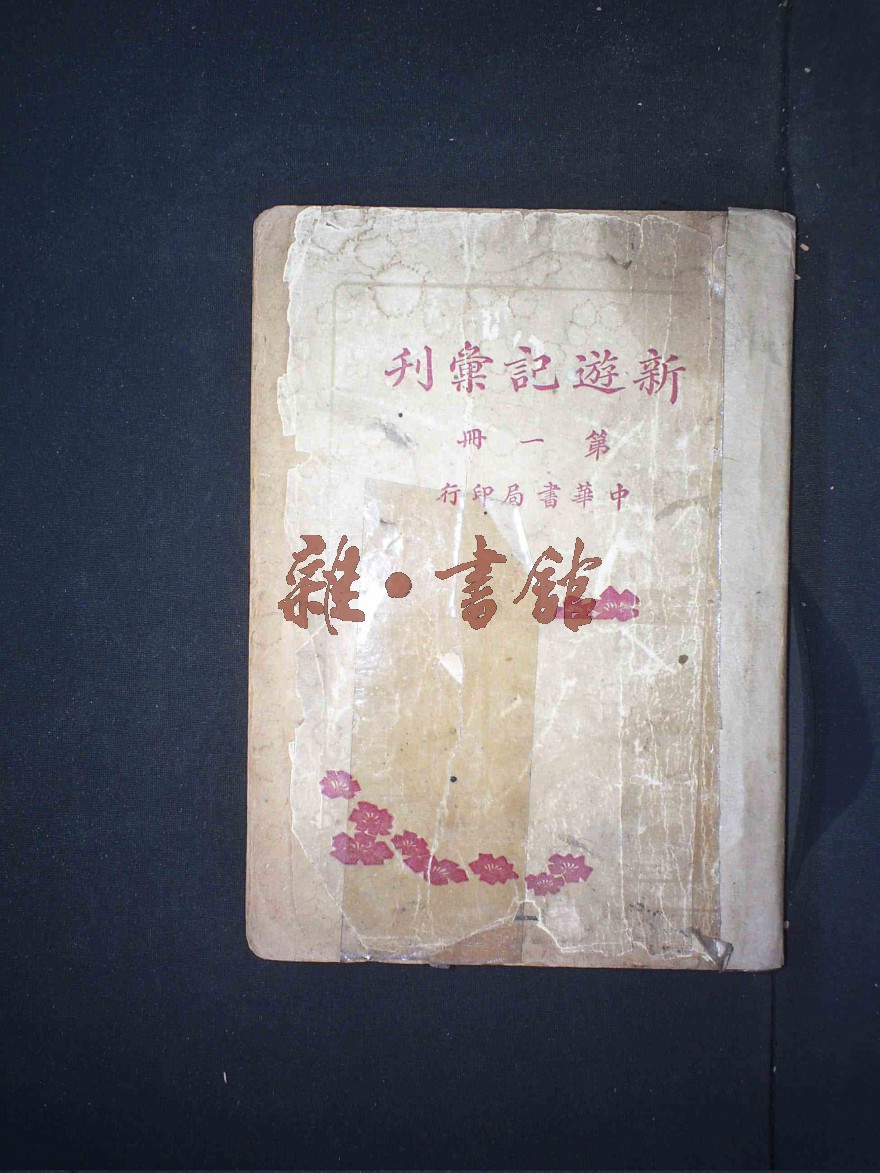 新遊記彙刊
第一冊
中華書局印行
雜·書舘